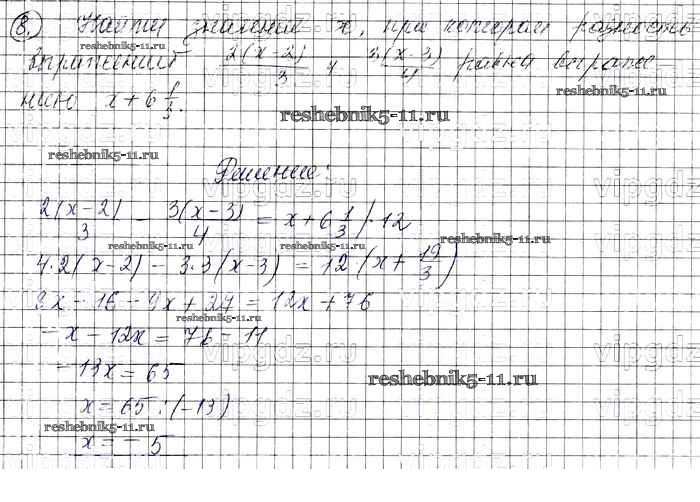 8. Найти значения x, при котором разность
выражений 2(x-2)/3 и 3(x-3)/4 равна выраже-
нию x + 6 1/3.
Решение:
2(x-2)/3 - 3(x-3)/4 = x + 6 1/3 | · 12
4·2(x-2) - 3·3(x-3) = 12(x + 19/3)
8x - 16 - 9x + 27 = 12x + 76
-x - 12x = 76 - 11
-13x = 65
x = 65 : (-13)
x = -5
reshebnik5-11.ru
reshebnik5-11.ru
reshebnik5-11.ru
reshebnik5-11.ru
reshebnik5-11.ru
reshebnik5-11.ru
reshebnik5-11.ru
reshebnik5-11.ru
reshebnik5-11.ru
reshebnik5-11.ru
reshebnik5-11.ru
vipgdz.ru
vipgdz.ru
vipgdz.ru
vipgdz.ru